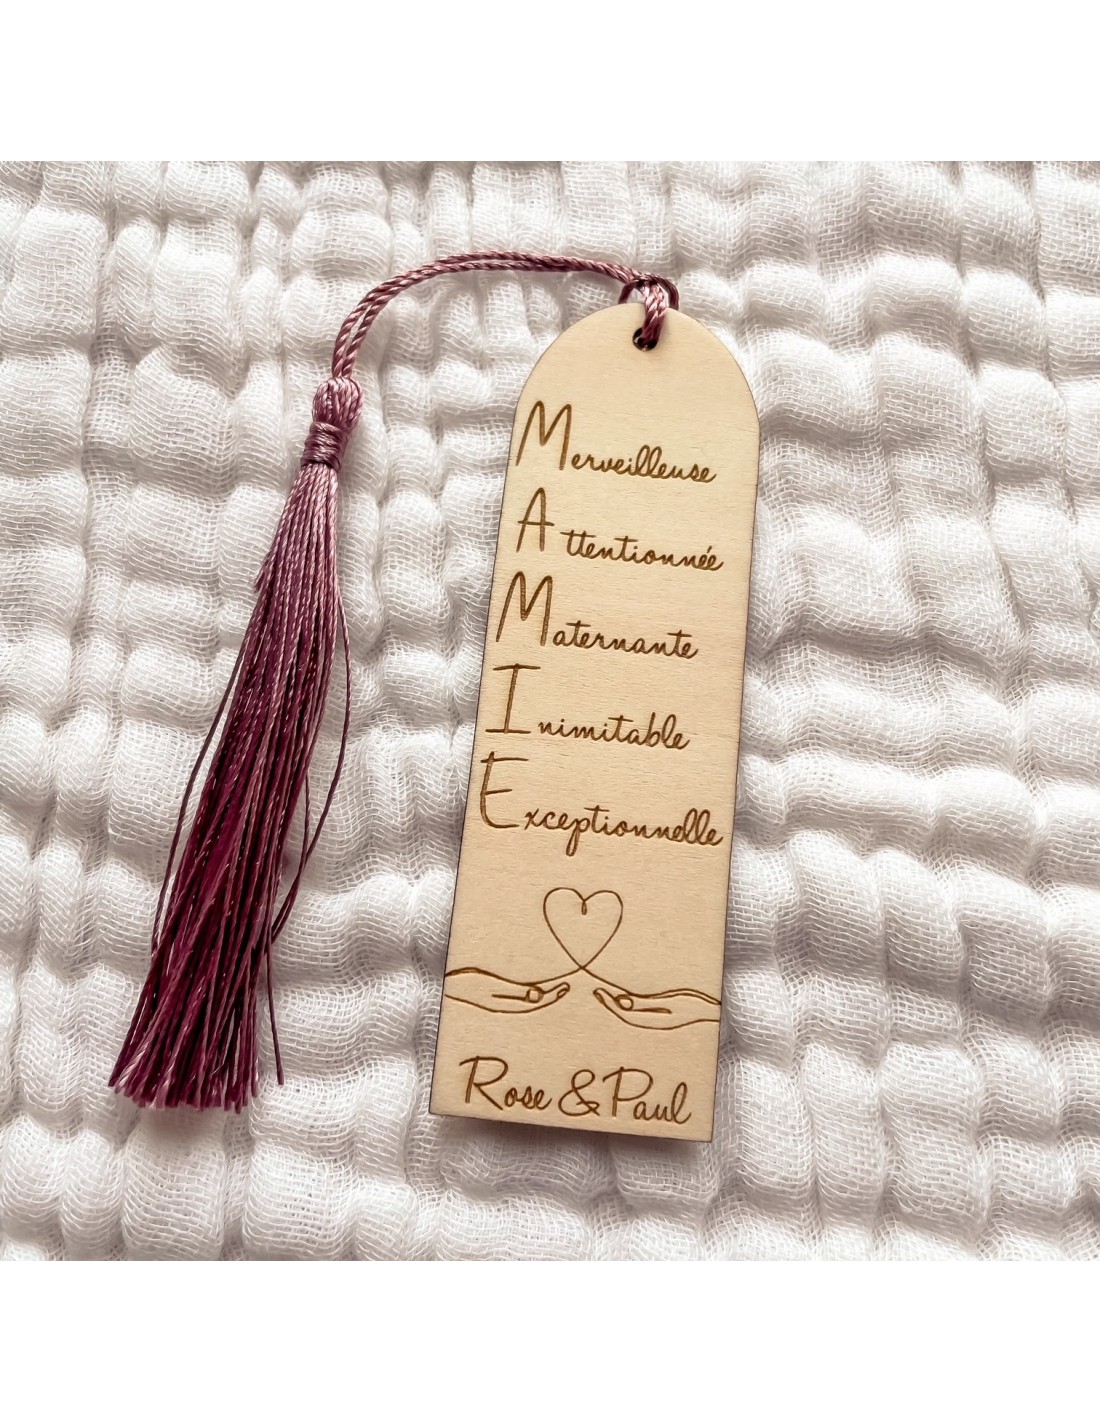 Merveilleuse
Attentionnée
Maternante
Inimitable
Exceptionnelle
Rose & Paul